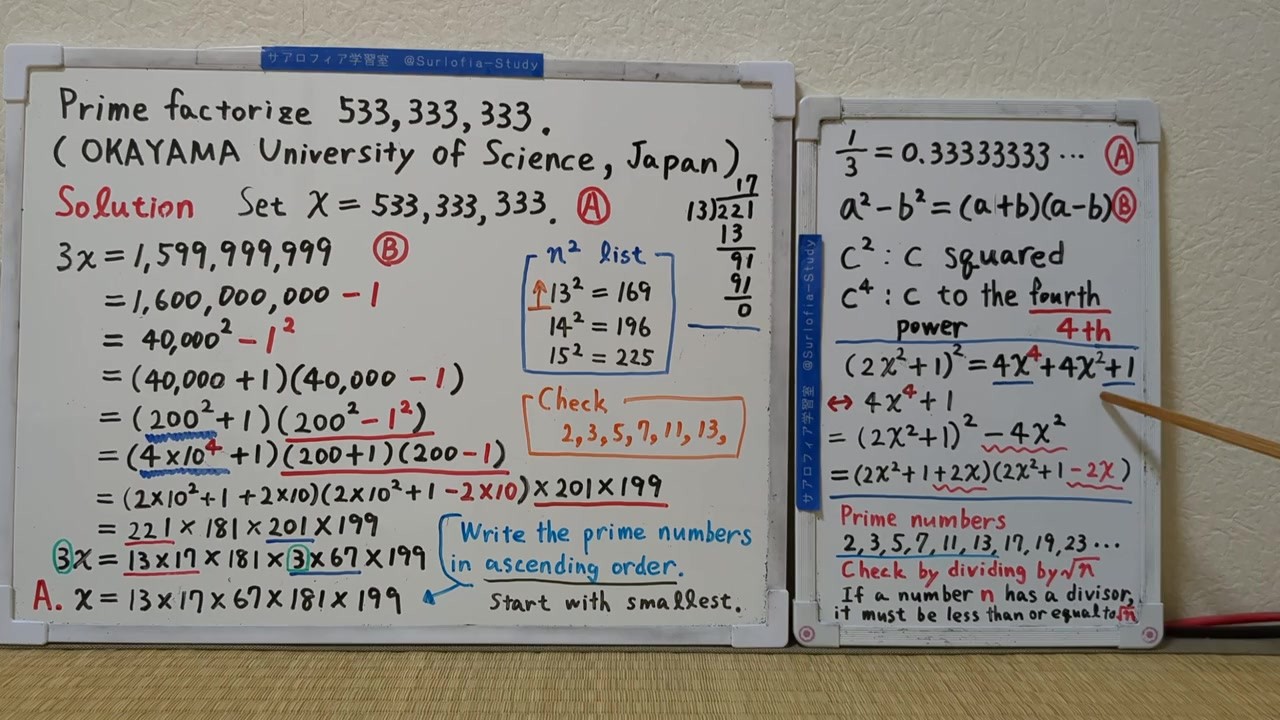 サアロフィア学習室 @Surlofia-Study
Prime factorize 533,333,333.
(OKAYAMA University of Science, Japan)
Solution Set x = 533,333,333. Ⓐ
3x = 1,599,999,999 Ⓑ
= 1,600,000,000 - 1
= 40,000² - 1²
= (40,000 + 1)(40,000 - 1)
= (200² + 1)(200² - 1²)
= (4×10⁴ + 1)(200+1)(200-1)
= (2×10²+1+2×10)(2×10²+1-2×10)×201×199
= 221×181×201×199
3x = 13×17×181×3×67×199
A. x = 13×17×67×181×199
n² list
↑13² = 169
14² = 196
15² = 225
17
13)221
13
91
91
0
Check
2,3,5,7,11,13,
Write the prime numbers
in ascending order.
Start with smallest.
サアロフィア学習室 @Surlofia-Study
1/3 = 0.33333333… Ⓐ
a²-b²=(a+b)(a-b)Ⓑ
C² : C squared
C⁴ : C to the fourth
power 4th
(2x²+1)²=4x⁴+4x²+1
↔ 4x⁴+1
= (2x²+1)² -4x²
=(2x²+1+2x)(2x²+1-2x)
Prime numbers
2,3,5,7,11,13,17,19,23…
Check by dividing by √n
If a number n has a divisor,
it must be less than or equal to √n